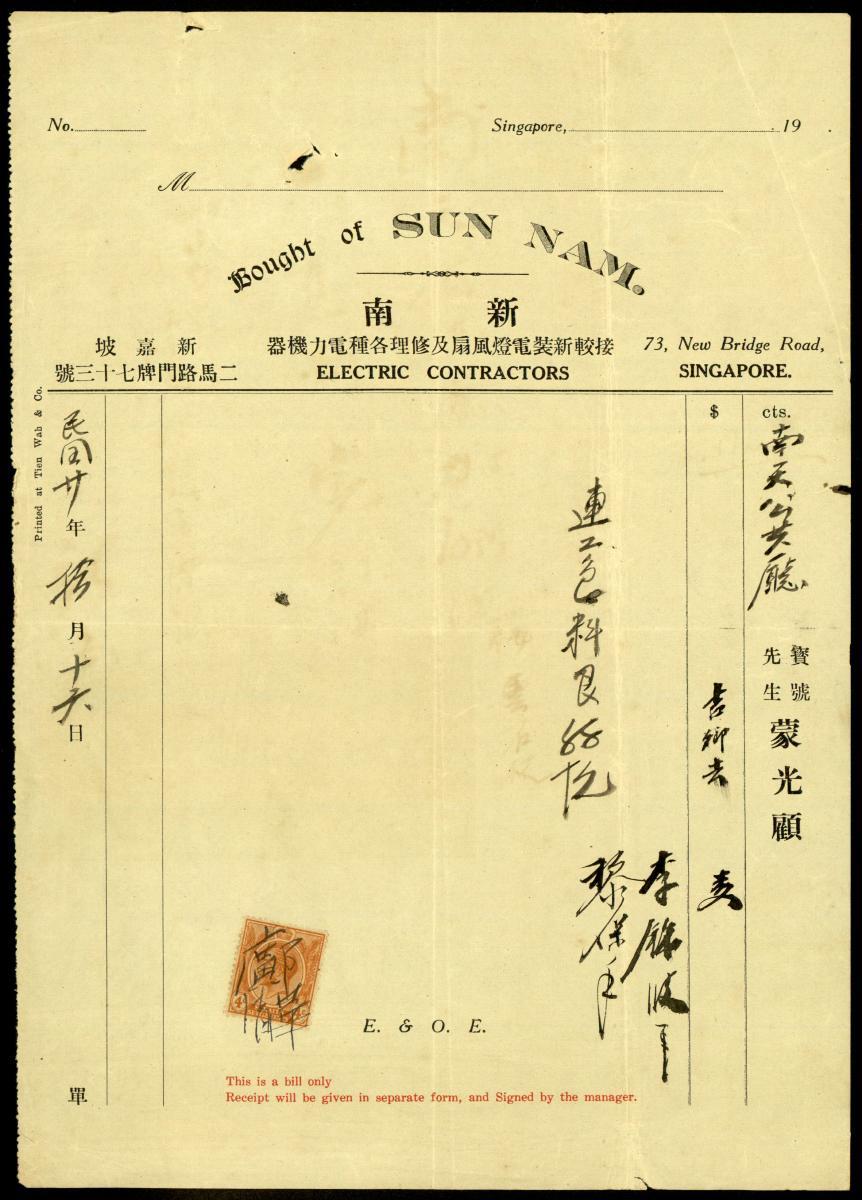 No.
Singapore, 19
M
Bought of SUN NAM.
新南
接較新裝電燈風扇及修理各種電力機器
ELECTRIC CONTRACTORS
新嘉坡
二馬路門牌七十三號
73, New Bridge Road,
SINGAPORE.
$ cts.
南天公共廳
寶號
先生
蒙光顧
連工包料艮
李
黎保
民国廿年拾月十六日
單
Printed at Tien Wah & Co.
E. & O. E.
This is a bill only
Receipt will be given in separate form, and Signed by the manager.